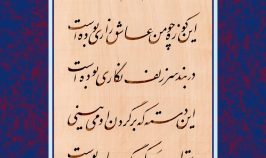 این کوزه چو من عاشق زاری بوده است
در بند سر زلف نگاری بوده است
این دسته که بر گردن او می بینی